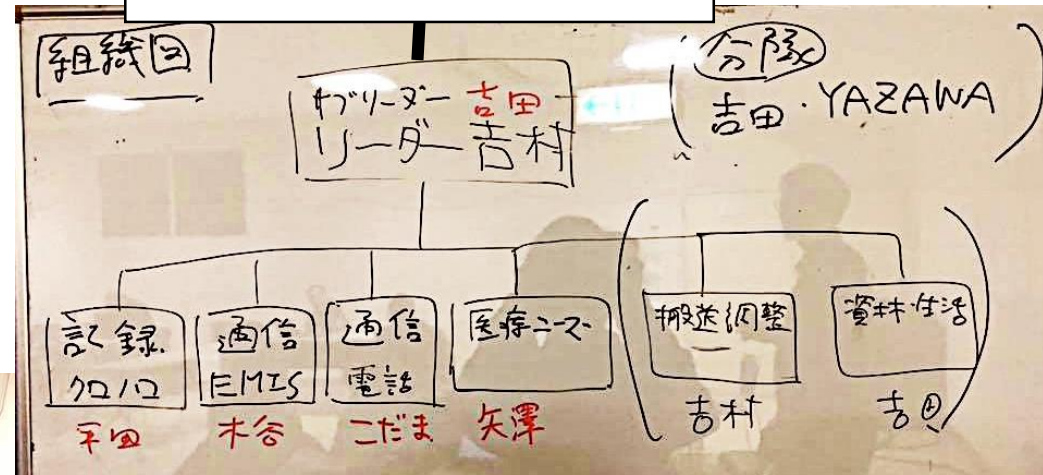 組織図
サブリーダー 吉田
リーダー 吉村
(分隊
吉田・YAZAWA)
記録
クロノロ
平田
通信
EMIS
木谷
通信
電話
こだま
医療ニーズ
矢澤
搬送調整
吉村
資材・生活
吉田